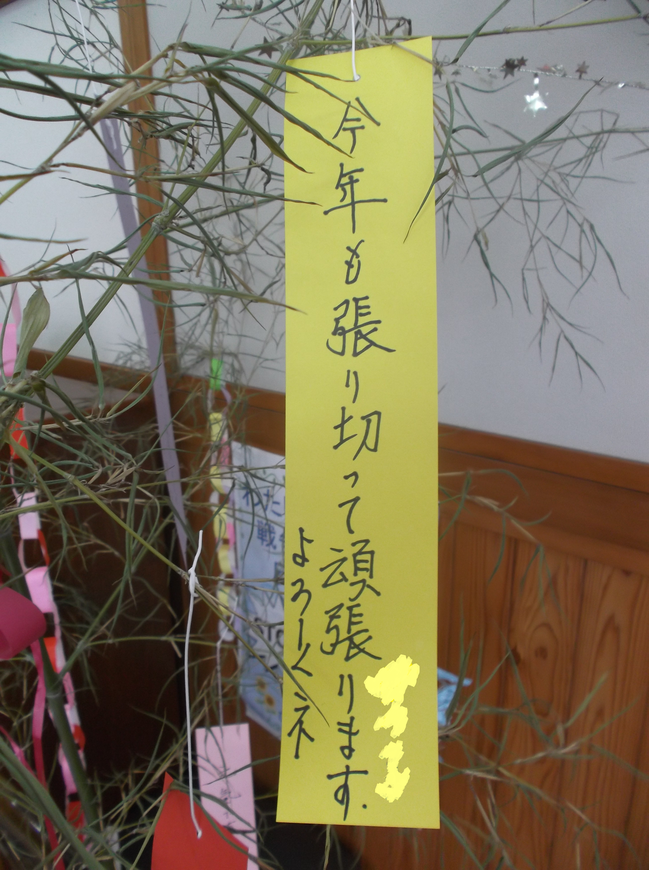 今年も張り切って頑張ります.
よろしくネ
わた
戦